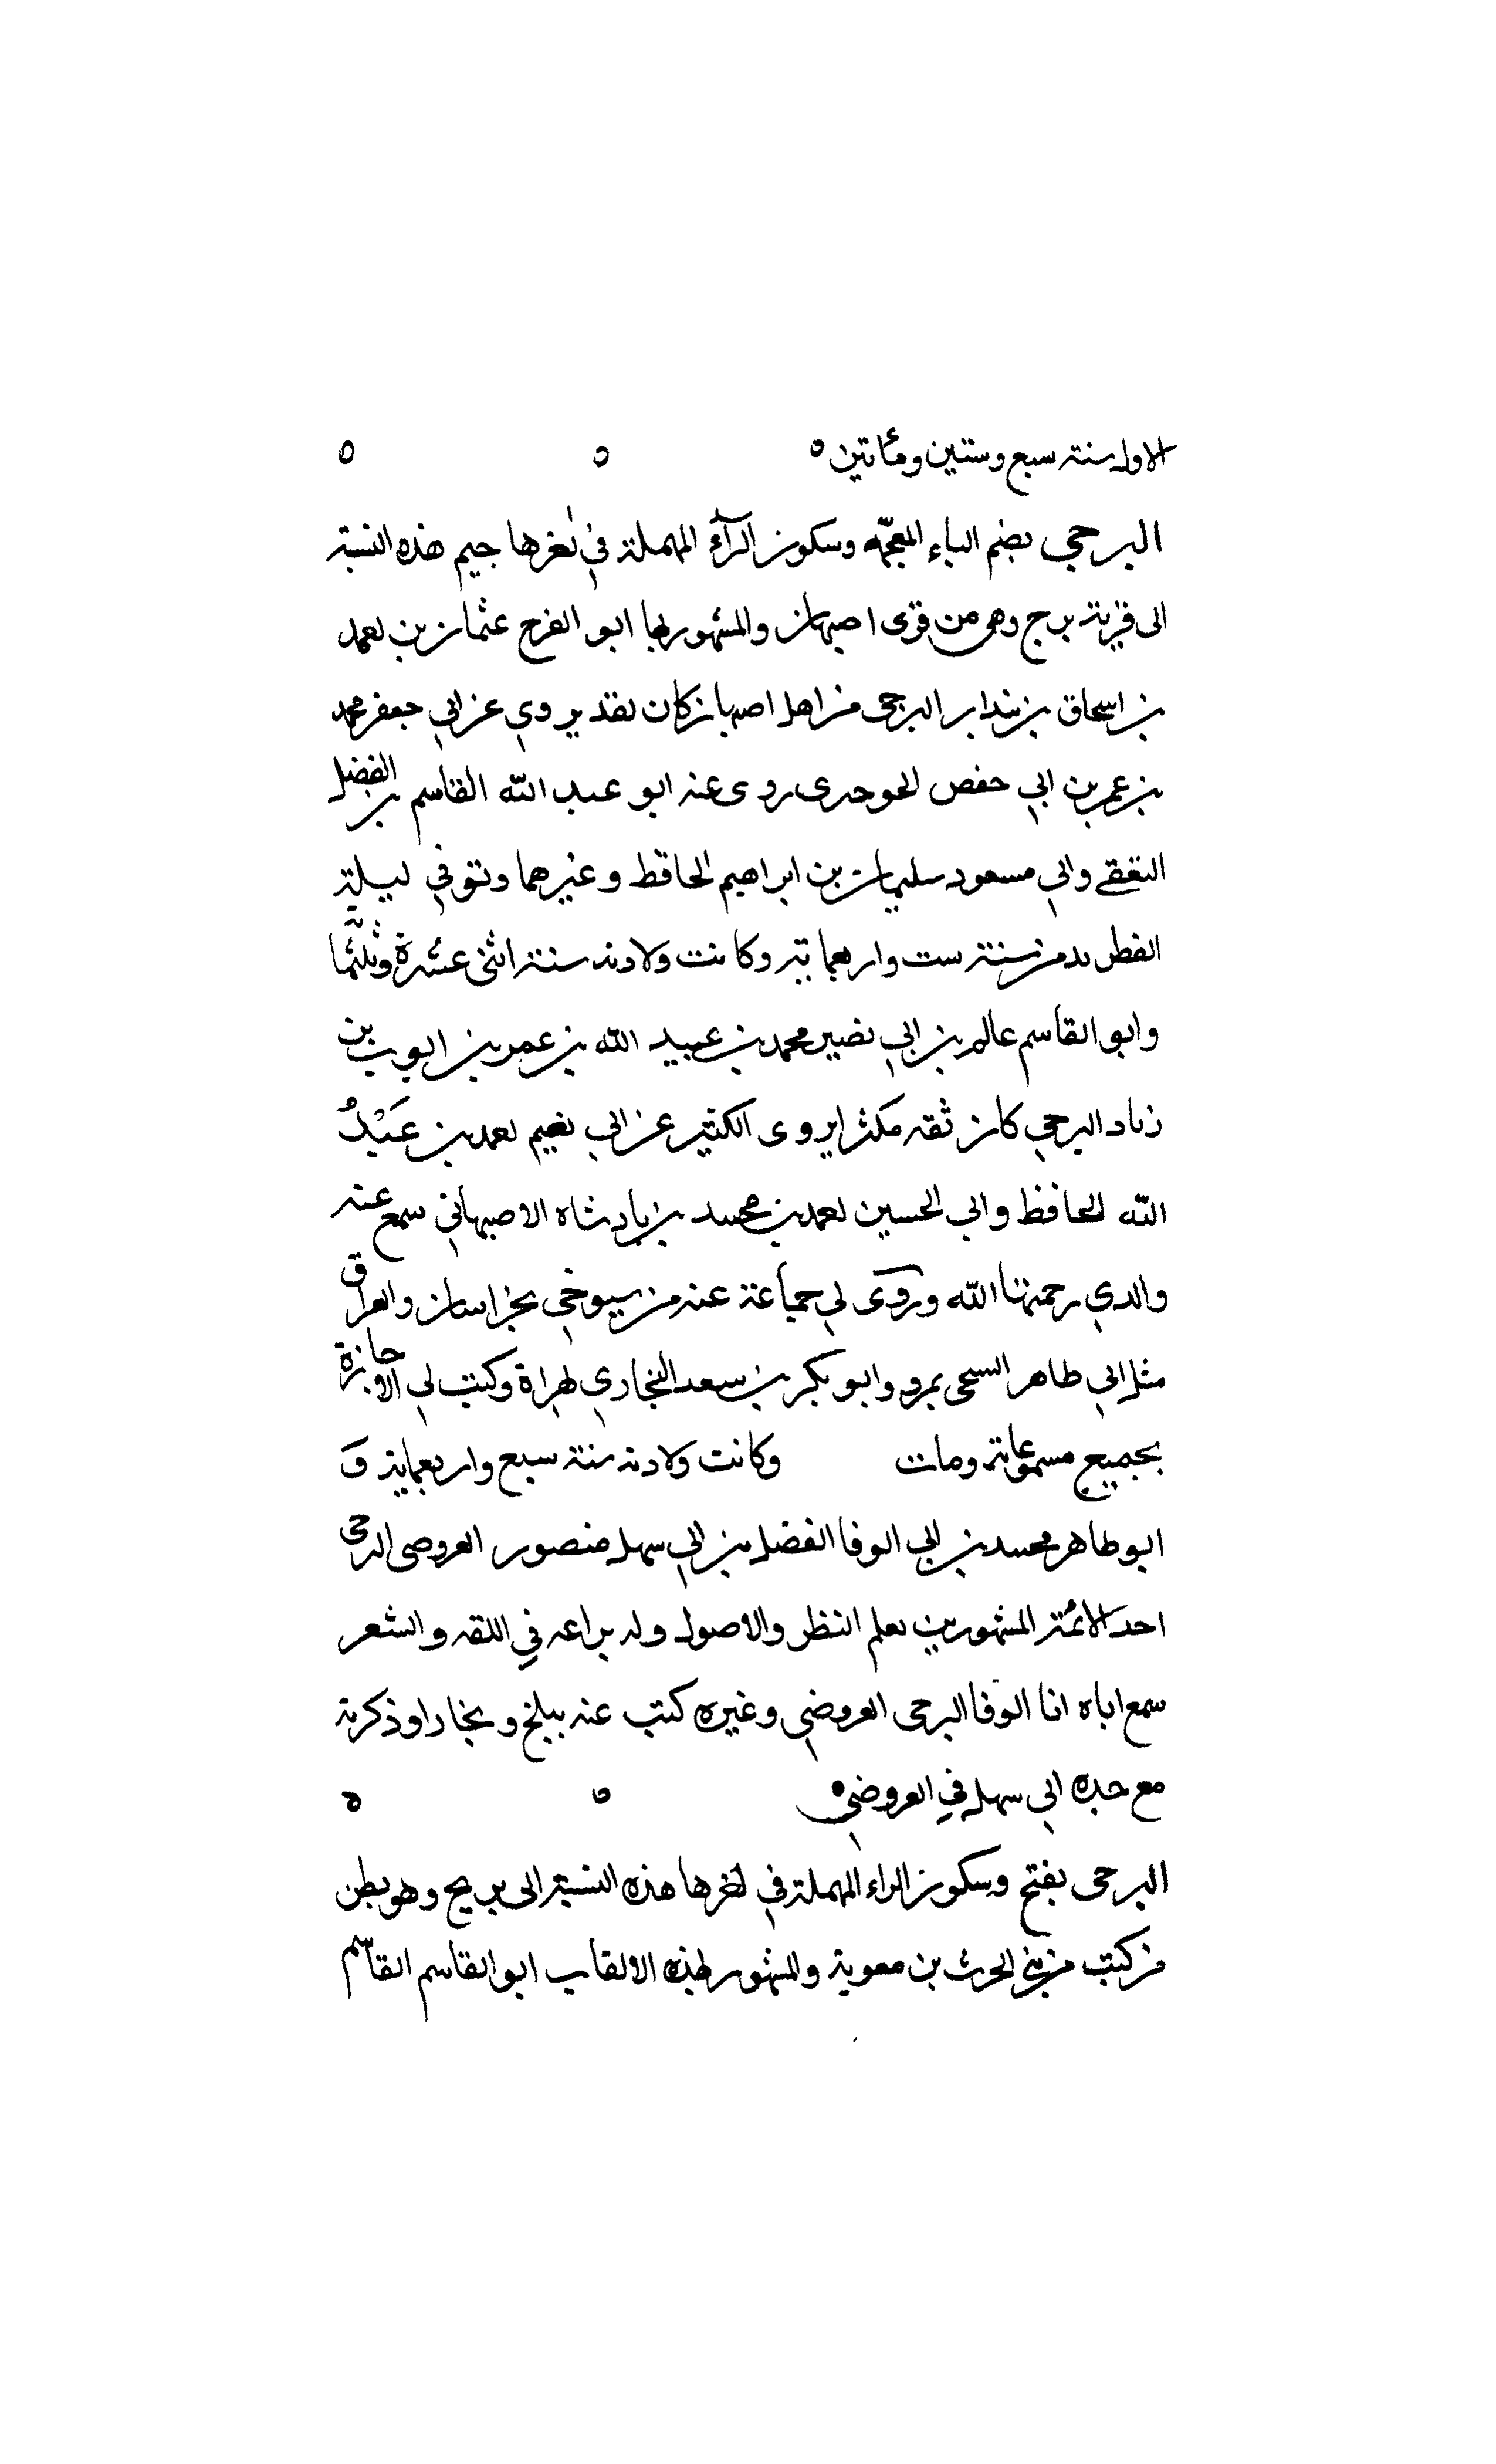 الاول سنة سبع وستين ومئاتين ه ه ه
البرجي بضم الباء المعجمة وسكون الرآء المهملة في اخرها جيم هذه النسبة
الى قرية برج وهى من قرى اصبهان والمشهور بها ابو الفرج عثمان بن احمد
بن اسحاق بن بندار البرجى من اهل اصبهان كان ثقة يروي عن ابي جعفر محمد
بن عمر بن ابي حفص الجورجيرى روى عنه ابو عبد الله القاسم بن الفضل
الثقفي وابي مسعود سليمان بن ابراهيم الحافظ وغيرهما وتوفي ليلة
الفطر من سنة ست واربعماية وكانت ولادته سنة اثنى عشرة وثلثما
وابو القاسم غانم بن ابي نصير محمد بن عبيد الله بن عمر بن ايوب بن
زياد البرجي كان ثقة مكثرا يروى الكثير عن ابي نعيم احمد بن عبد
الله الحافظ وابي الحسين احمد بن محمد بن بادشاه الاصبهاني سمع عنه
والدي رحمهما الله وروى لي جماعة عنه من شيوخي بخراسان والعراق
مثل ابي طاهر السنجى بمرو وابو بكر بن سعد البخاري بهراة وكتب لي الاجازة
بجميع مسموعاته ومات وكانت ولادته سنة سبع واربعماية و
ابو طاهر محمد بن ابي الوفا الفضل بن ابي سهل منصور العروضى البرجى
احد الائمة المشهورين بعلم النظر والاصول وله براعة في اللقه والشعر
سمع اباه انا الوفا البرجى العروضي وغيره كتب عنه ببلخ وبخارا وذكرته
مع جده ابي سهل في العروضي ه ه
البرحى بفتح وسكون الراء المهملة في اخرها هذه النسبة الى بريح وهو بطن
من كتب من بني الحرث بن معوية والمشهور بهذه الالقاب ابو القاسم القاسم